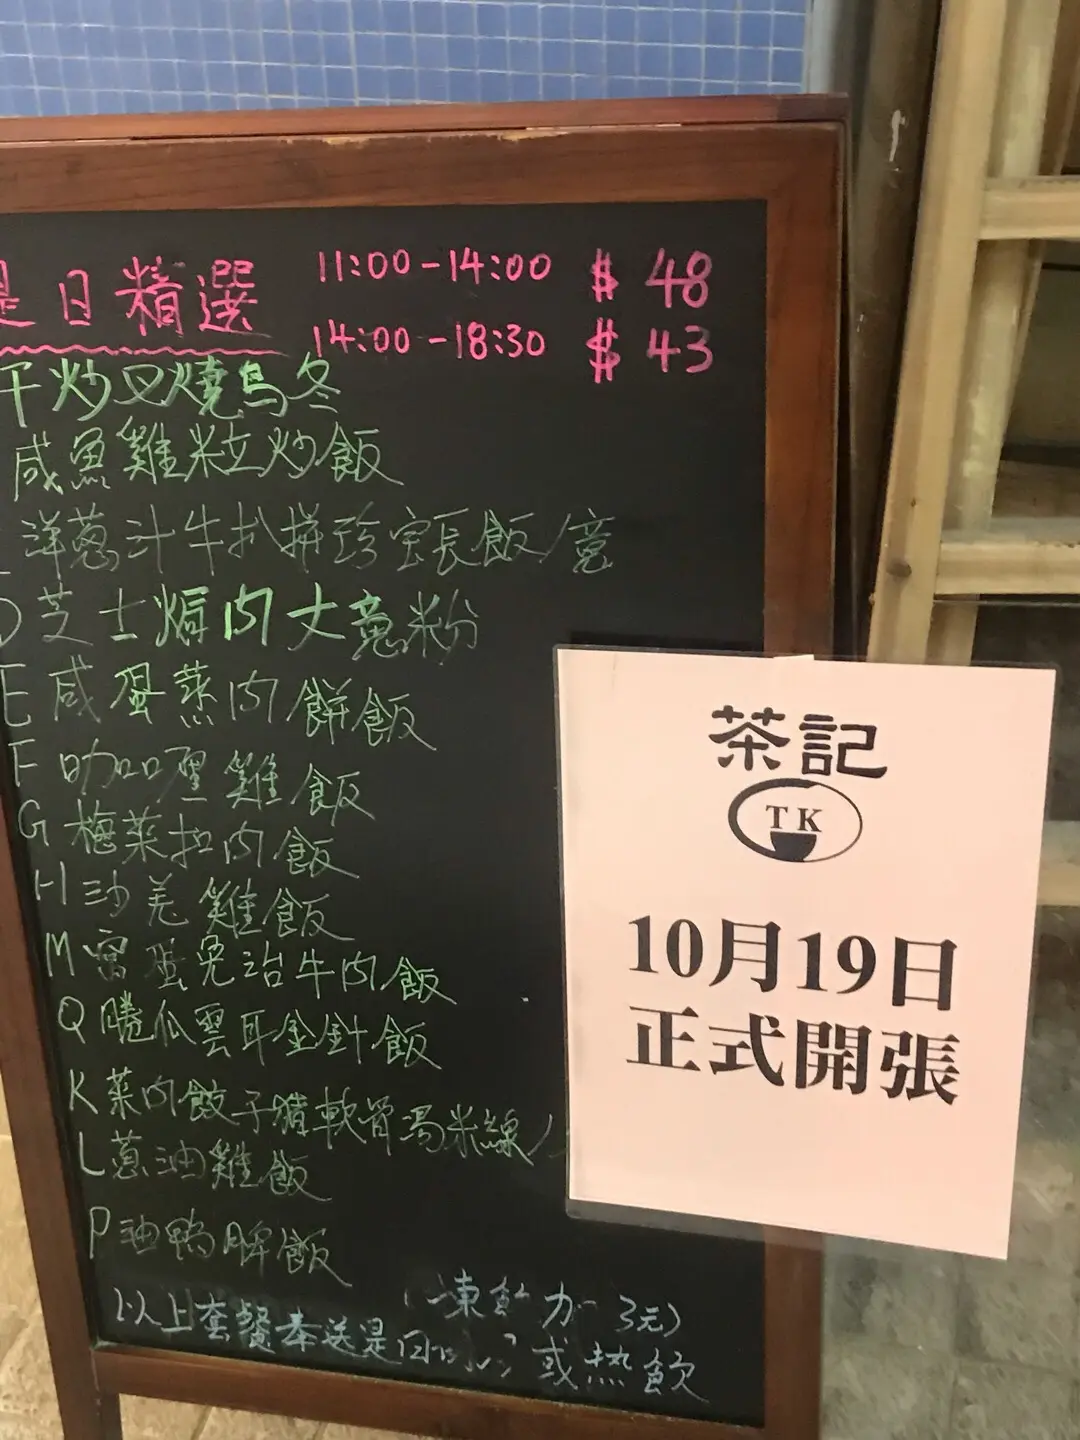 是日精選 11:00-14:00 $48
14:00-18:30 $43
干炒叉燒烏冬
咸魚雞粒炒飯
洋蔥汁牛扒拼珍宝長飯/意
D芝士焗肉丈意粉
E咸蛋蒸肉餅飯
F咖喱雞飯
G梅菜扣肉飯
H沙羌雞飯
M窩蛋免治牛肉飯
Q勝瓜雲耳金針飯
K菜肉餃子猪軟骨湯米線/
L蔥油雞飯
P油鴨脾飯
(凍飲加3元)
以上套餐奉送是日 或热飲
茶記
TK
10月19日
正式開張